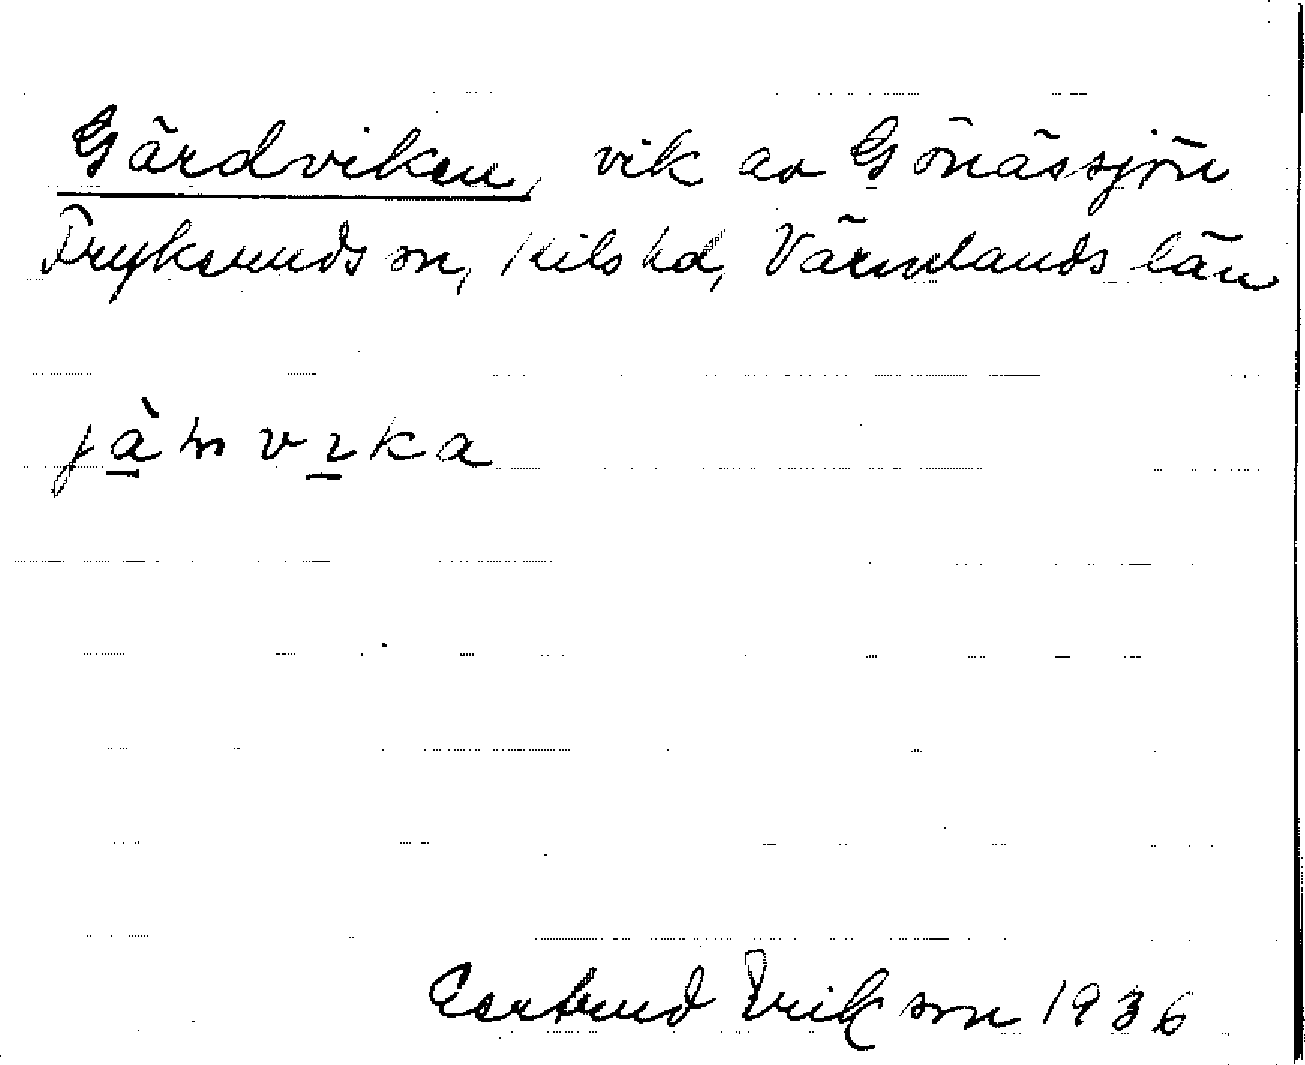 Gärdviken, vik av Gönässjön
Fryksunds sn, Kils hd, Värmlands län
Gertrud Erikson 1936